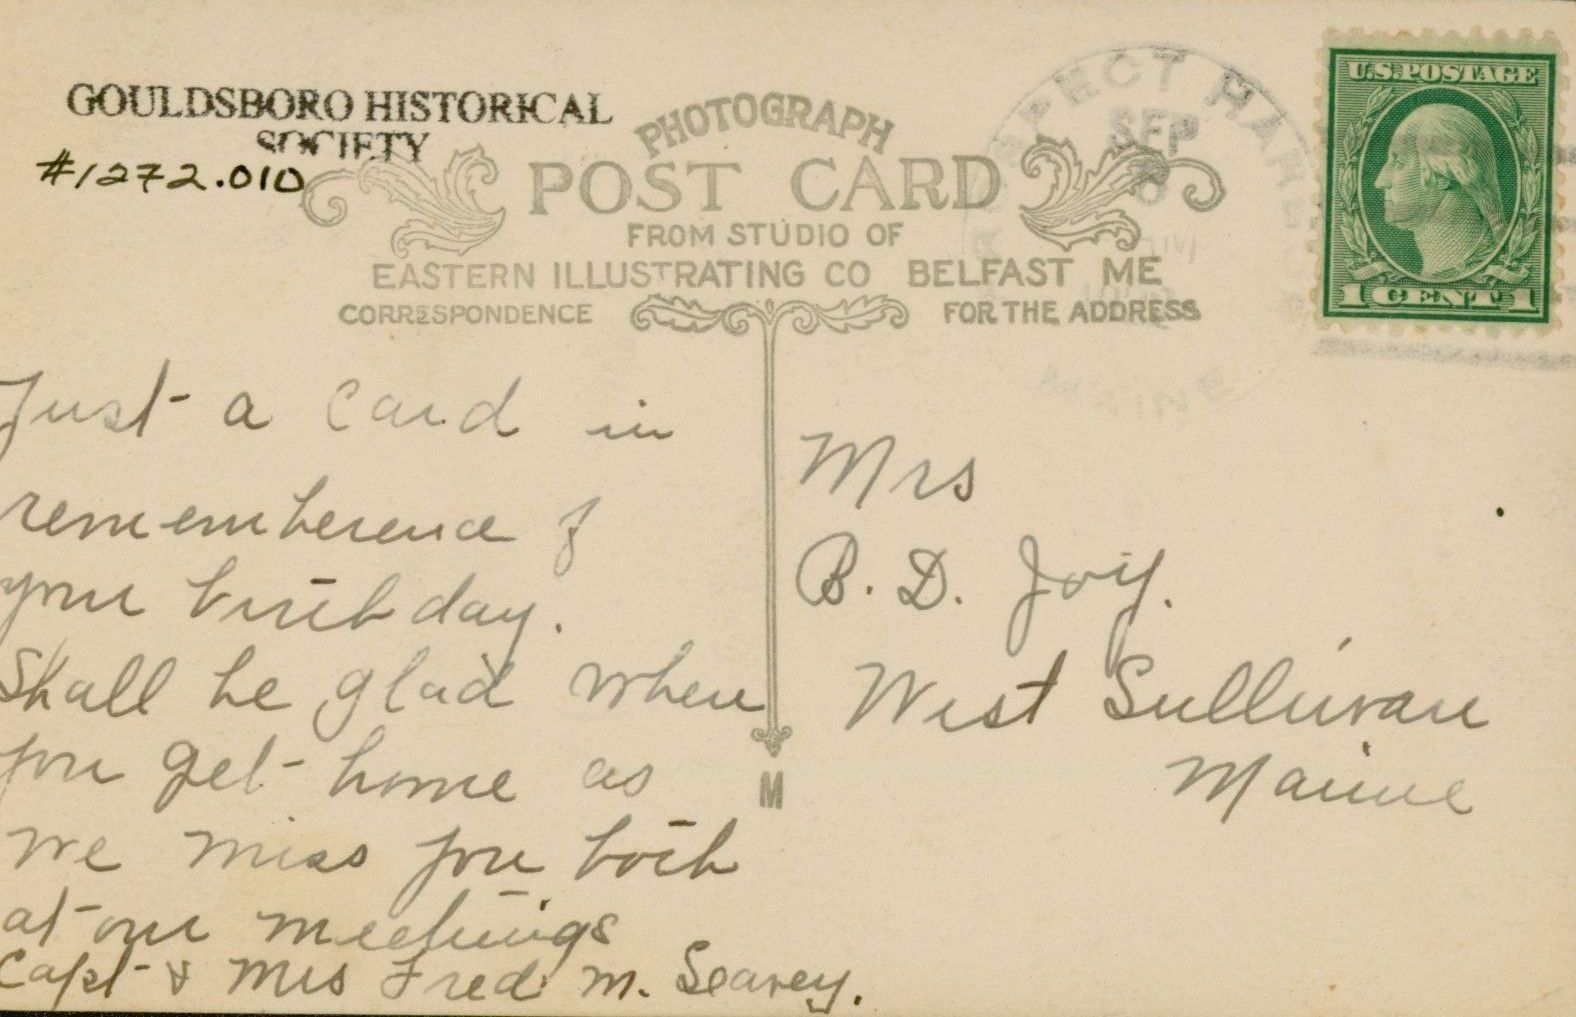 GOULDSBORO HISTORICAL
SOCIETY
#1272.010
PHOTOGRAPH
POST CARD
FROM STUDIO OF
EASTERN ILLUSTRATING CO BELFAST ME
CORRESPONDENCE
FOR THE ADDRESS
SEP
MAINE
U.S. POSTAGE
1 CENT 1
Just a card in
rememberence of
your birthday.
Shall be glad when
you get home as
we miss you both
at our meetings
Capt & Mrs Fred M. Seavey.
M
Mrs
B. D. Joy.
West Sullivan
Maine